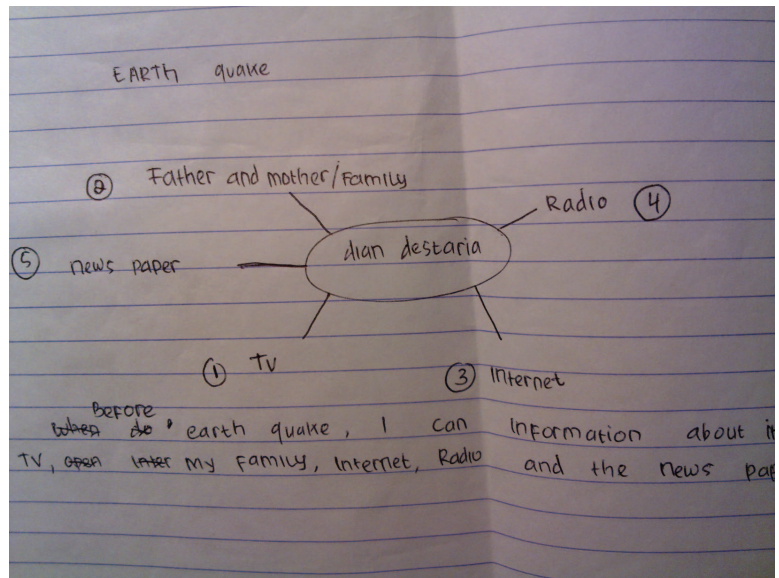 EARTH quake
② Father and mother/Family
Radio ④
⑤ news paper
dian destaria
① TV
③ Internet
Before
earth quake, I can information about
TV, my Family, Internet, Radio and the news